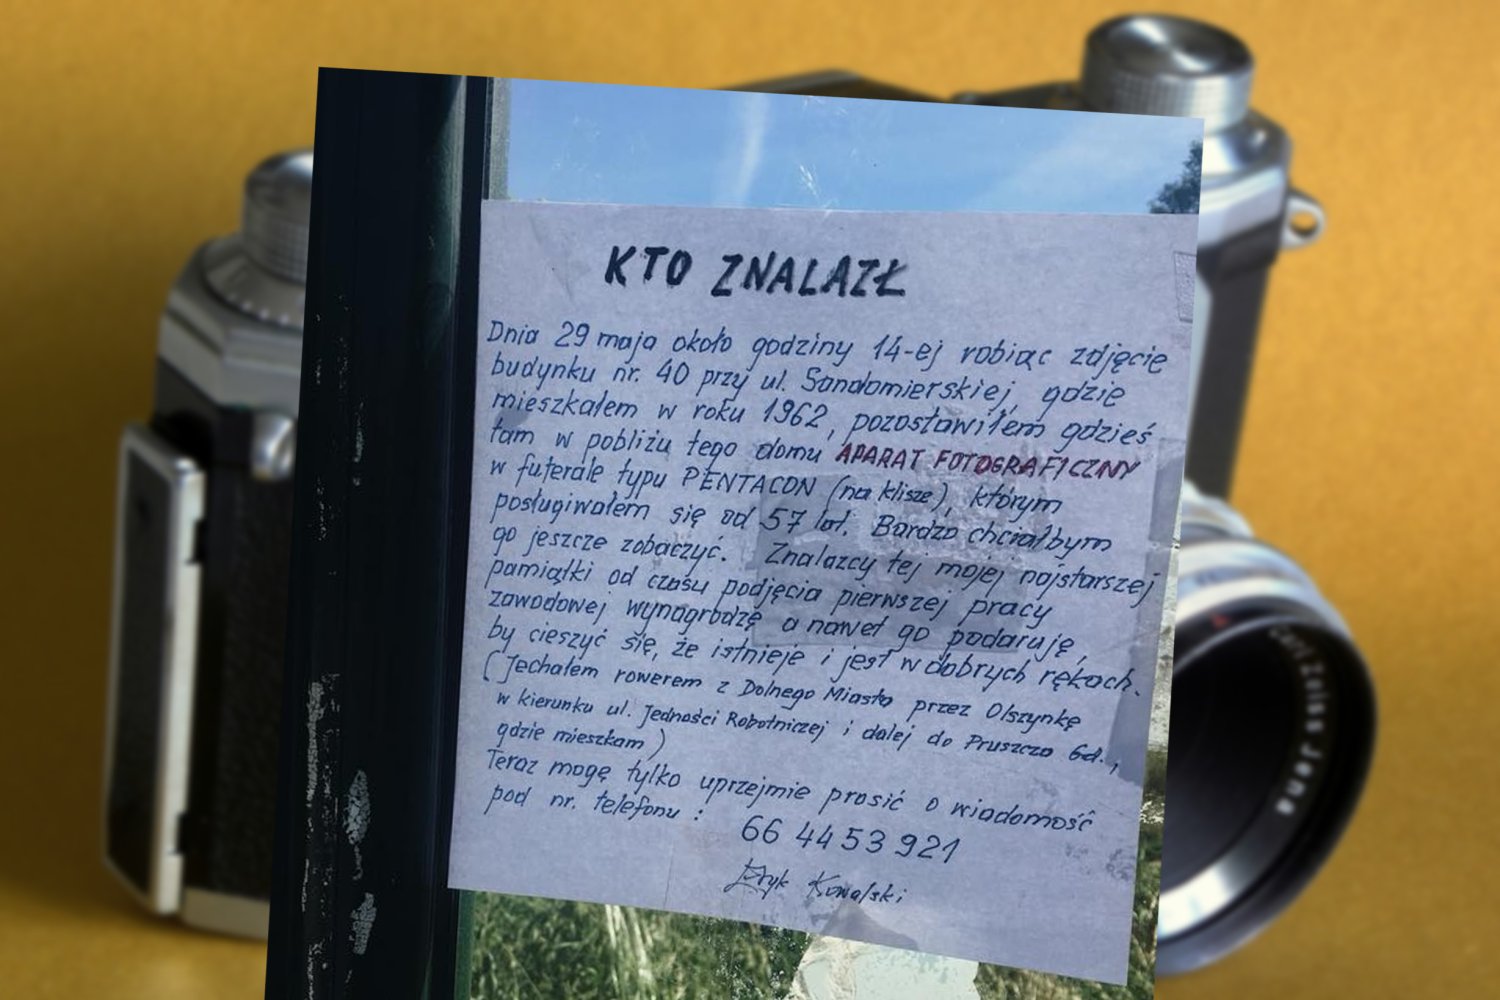 KTO ZNALAZŁ
Dnia 29 maja około godziny 14-ej robiąc zdjęcie
budynku nr. 40 przy ul. Sandomierskiej, gdzie
mieszkałem w roku 1962, pozostawiłem gdzieś
tam w pobliżu tego domu APARAT FOTOGRAFICZNY
w futerale typu PENTACON (na klisze), którym
posługiwałem się od 57 lat. Bardzo chciałbym
go jeszcze zobaczyć. Znalazcy tej mojej najstarszej
pamiątki od czasu podjęcia pierwszej pracy
zawodowej wynagrodzę a nawet go podaruję,
by cieszyć się, że istnieje i jest w dobrych rękach.
(Jechałem rowerem z Dolnego Miasta przez Olszynkę
w kierunku ul. Jedności Robotniczej i dalej do Pruszcza Gd.,
gdzie mieszkam)
Teraz mogę tylko uprzejmie prosić o wiadomość
pod nr. telefonu :
66 44 53 921
Eryk Kowalski
Carl Zeiss Jena